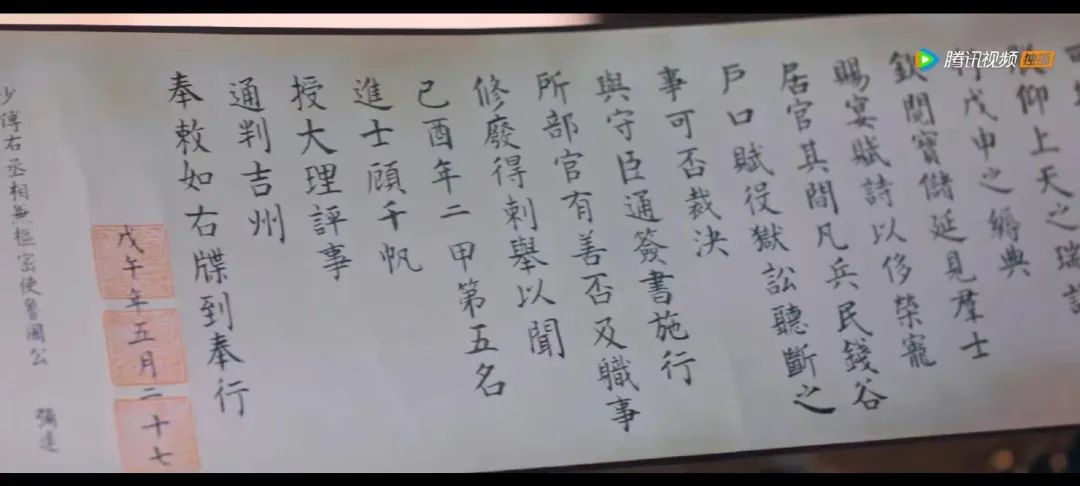 朕仰上天之瑞
行戊申之縟典
欽閱寶儲延見羣士
賜宴賦詩以侈榮寵
居官其間凡兵民錢谷
戶口賦役獄訟聽斷之
事可否裁決
與守臣通簽書施行
所部官有善否及職事
修廢得刺舉以聞
己酉年二甲第五名
進士顧千帆
授大理評事
通判吉州
奉敕如右牒到奉行
戊午年五月二十七
少傅右丞相兼樞密使魯國公
腾讯视频 独播